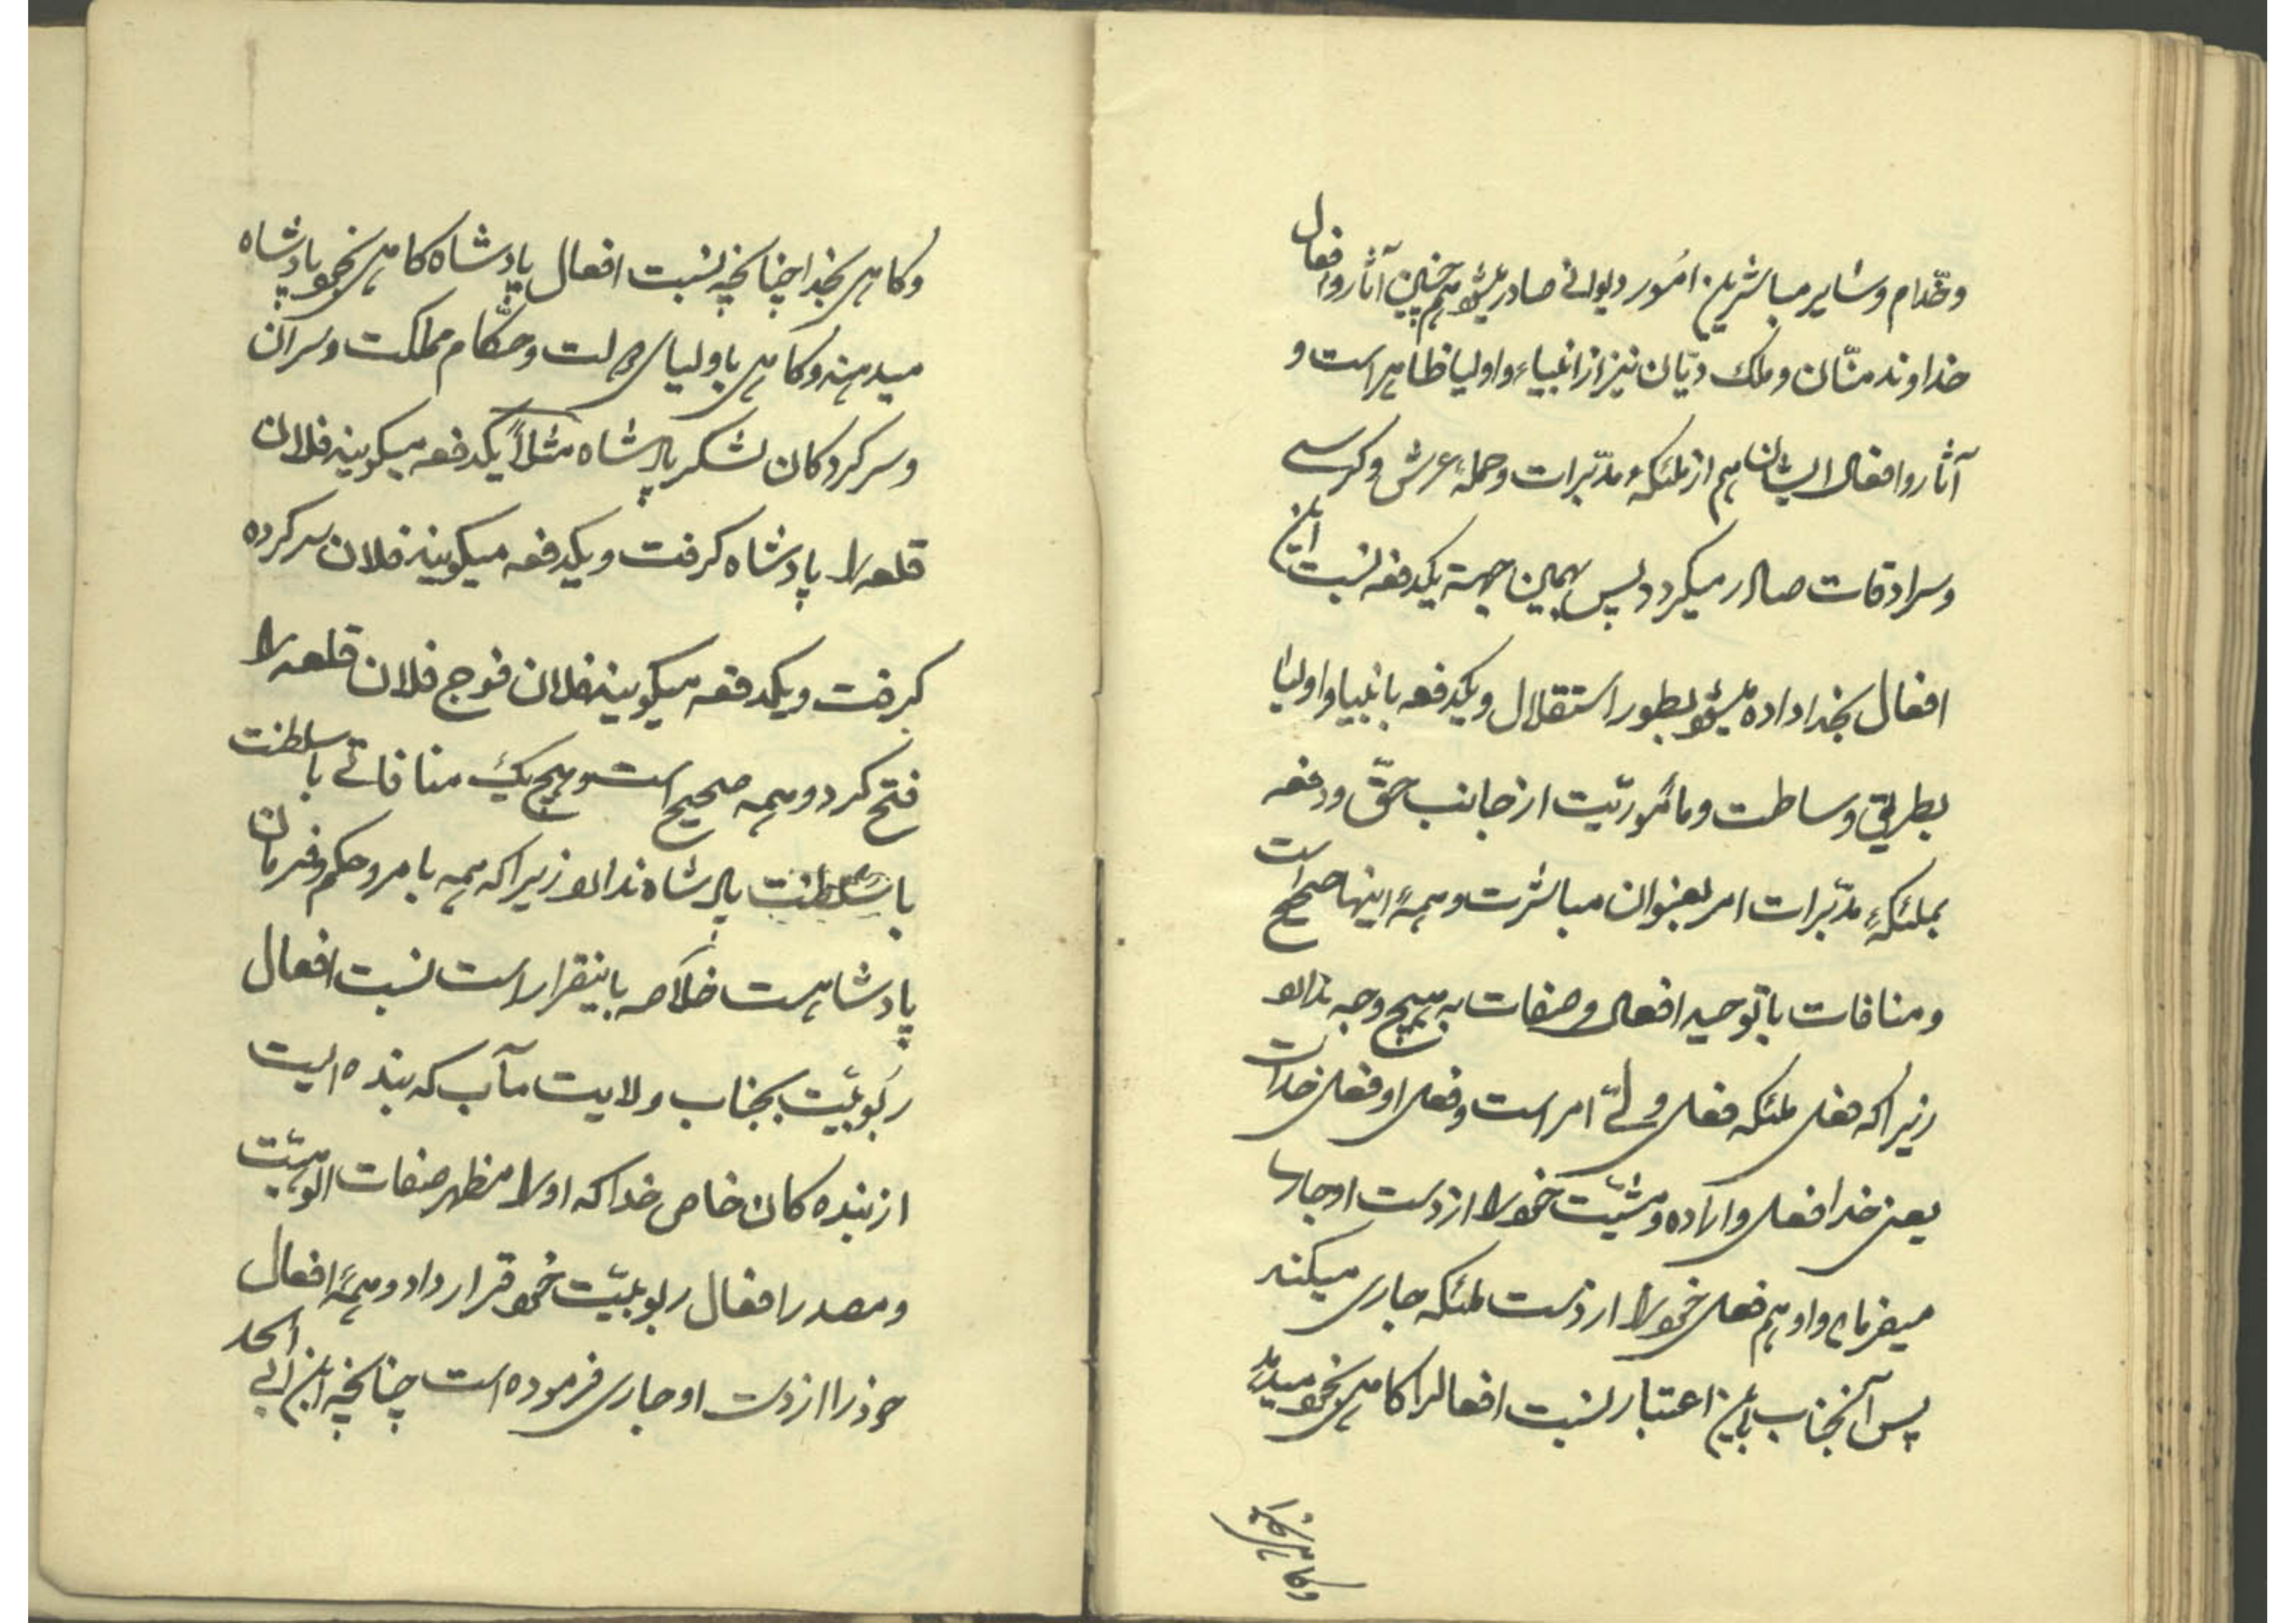 وخدّام وساير مباشرين امور ديوانى صادر ميشود همچنين آثار وافعال
خداوند منّان وملك ديّان نيز از انبياء و اوليا ظاهر است و
آثار وافعال ايشان هم از ملئكهٔ مدبّرات وحملهٔ عرش وكرسے
وسرادقات صادر ميكردد پس بهمين جهة يكدفعه نسبت اين
افعال بخدا داده ميشود بطور استقلال ويكدفعه بانبيا و اوليا
بطريق وساطت ومأموريّت از جانب حقّ ودفعه
بملئكهٔ مدبّرات امر بعنوان مباشرت وهمهٔ اينها صحيح است
ومنافات با توحيد افعال وصفات به هيچ وجه ندارد
زيرا كه فعل ملئكه فعل ولےّ امر است وفعل او فعل خداست
يعنى خدا فعل واراده ومشيّت خود را از دست او جارى
ميفرمايد و او هم فعل خود را از دست ملئكه جارى ميكند
پس آنجناب باين اعتبار نسبت افعال را كاهى بخود ميدهد
وكاهى بخدا
وكاهى بخدا چنانچه نسبت افعال پادشاه كاهى بخود پادشاه
ميدهند وكاهى باولياى دولت وحكّام مملكت وسران
وسركردكان لشكر پادشاه مثلاً يكدفعه ميكويند فلان
قلعه را پادشاه كرفت ويكدفعه ميكويند فلان سركرده
كرفت ويكدفعه ميكويند فلان فوج فلان قلعه را
فتح كرد وهمه صحيح است وهيچ يك منافاتے با سلطنت
با سلطنت پادشاه ندارد زيرا كه همه بامر وحكم وفرمان
پادشاهست خلاصه باينقرار است نسبت افعال
ربوبيّت بجناب ولايت مآب كه بنده ايست
از بنده كان خاص خدا كه او را مظهر صفات الوهيّت
ومصدر افعال ربوبيّت خود قرار داد وهمهٔ افعال
خود را از دست او جارى فرموده است چنانچه ابن ابى الحد